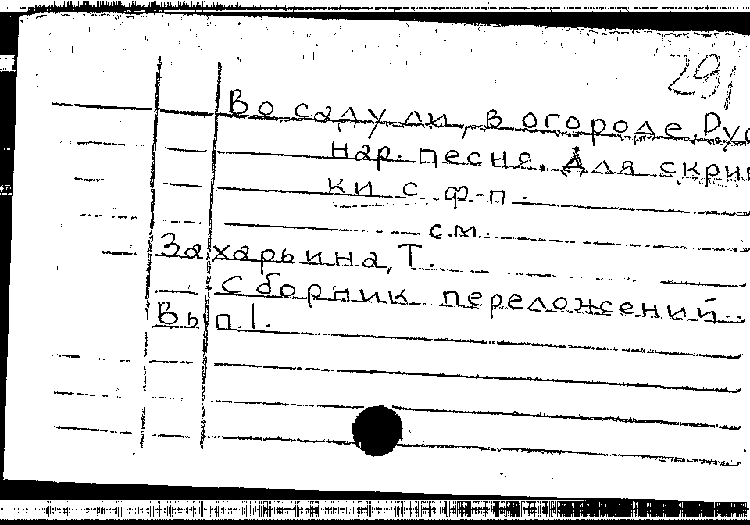 291
Во саду ли, в огороде. Рус
нар. песня. Для скрип
ки с ф-п.
с.м.
Захарьина, Т.
Сборник переложений.
Вып. 1.